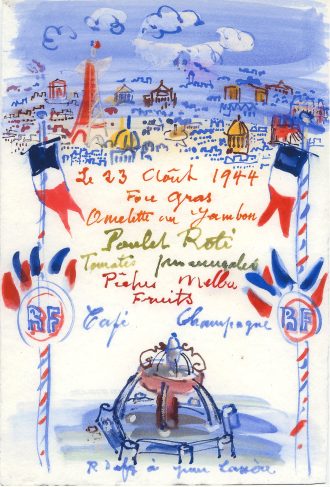 Le 23 Août 1944
Foie Gras
Omelette au Jambon
Poulet Rôti
Tomates
Pêches Melba
Fruits
Café Champagne
RF RF
R Dufy à